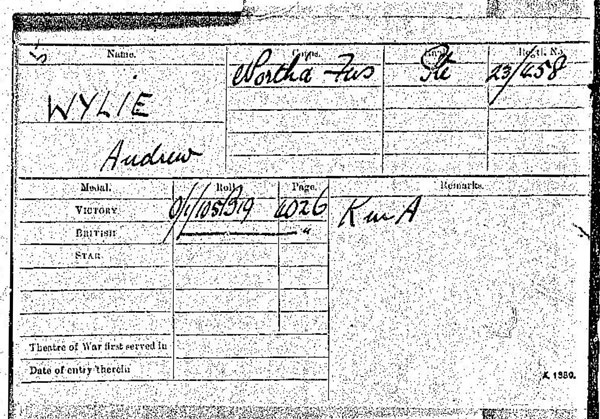 Name. Corps. Rank. Regtl. No.
Northd Fus Pte 23/458
WYLIE
Andrew
Medal. Roll. Page. Remarks.
VICTORY 0/1/105B19 4026 K in A
BRITISH "
STAR
Theatre of War first served in
Date of entry therein
K. 1380.